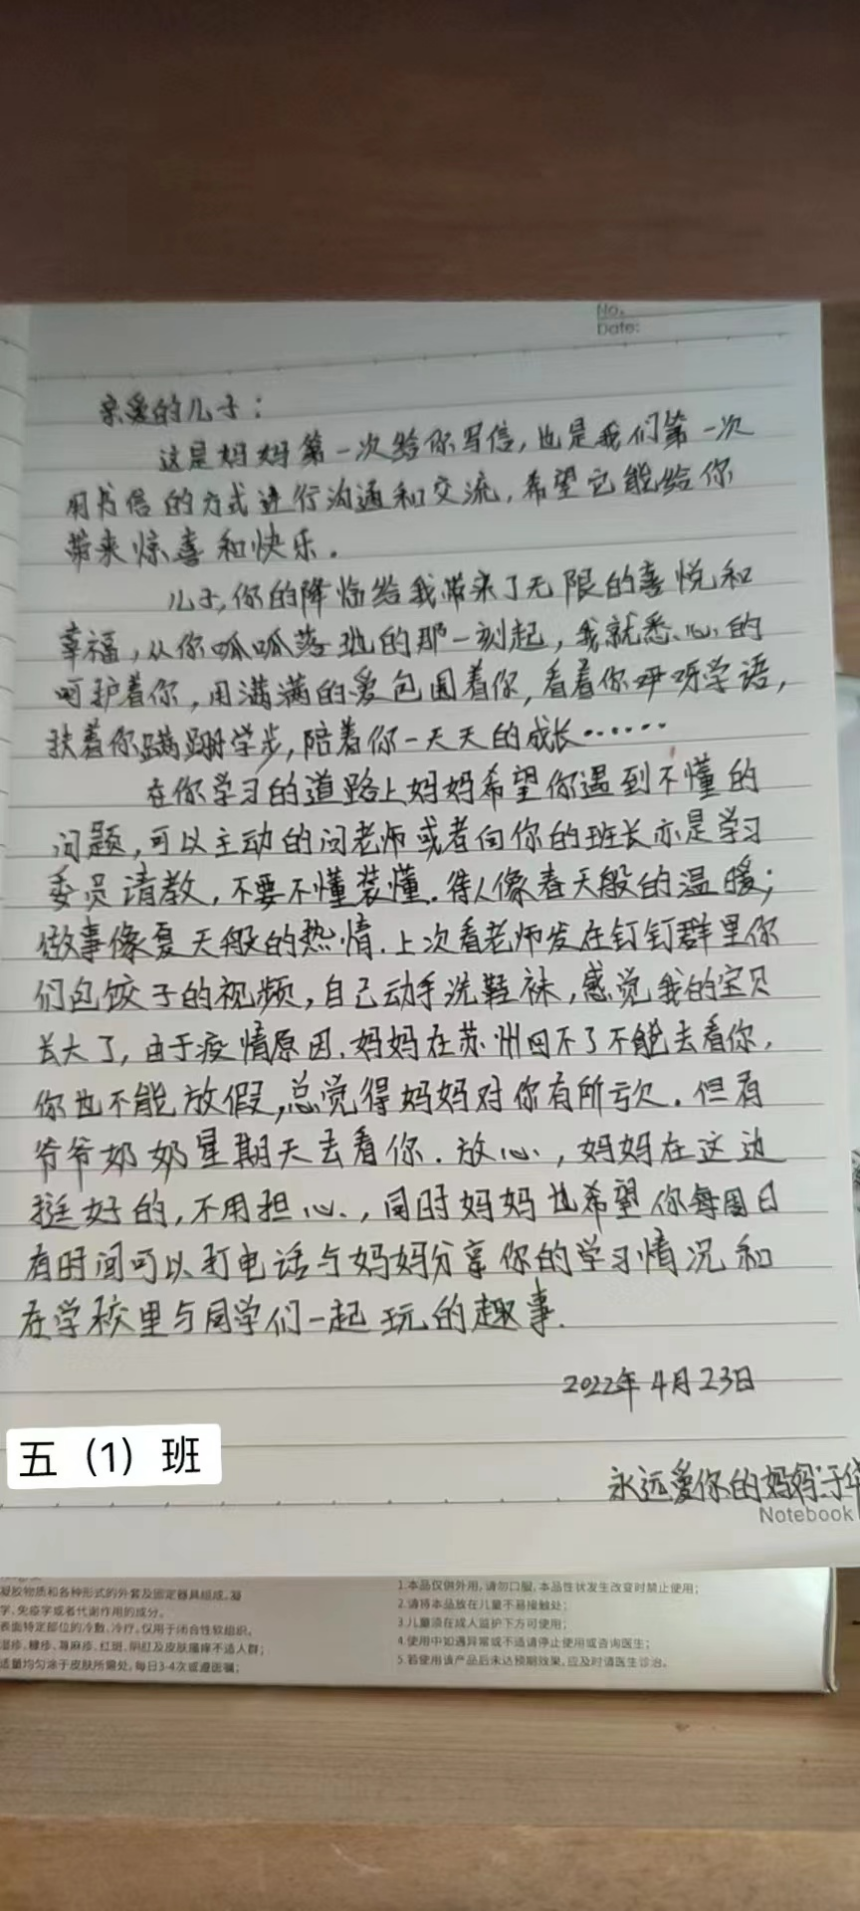 No.
Date:
亲爱的儿子：
这是妈妈第一次给你写信，也是我们第一次
用书信的方式进行沟通和交流，希望它能给你
带来惊喜和快乐．
儿子，你的降临给我带来了无限的喜悦和
幸福，从你呱呱落地的那一刻起，我就悉心的
呵护着你，用满满的爱包围着你，看着你呀呀学语，
扶着你蹒跚学步，陪着你一天天的成长……
在你学习的道路上妈妈希望你遇到不懂的
问题，可以主动的问老师或者向你的班长亦是学习
委员请教，不要不懂装懂．待人像春天般的温暖；
做事像夏天般的热情．上次看老师发在钉钉群里你
们包饺子的视频，自己动手洗鞋袜，感觉我的宝贝
长大了，由于疫情原因．妈妈在苏州回不了不能去看你，
你也不能放假，总觉得妈妈对你有所亏欠．但有
爷爷奶奶星期天去看你．放心，妈妈在这边
挺好的，不用担心，同时妈妈也希望你每周日
有时间可以打电话与妈妈分享你的学习情况和
在学校里与同学们一起玩的趣事．
2022年4月23日
五（1）班
永远爱你的妈妈：于华
Notebook
凝胶物质和各种形式的外套及固定器具组成，凝
学、免疫学或者代谢作用的成分。
表面特定部位的冷敷、冷疗，仅用于闭合性软组织。
湿疹、糠疹、荨麻疹、红斑、阴肛及皮肤瘙痒不适人群；
适量均匀涂于皮肤所需处，每日3-4次或遵医嘱；
1.本品仅供外用，请勿口服，本品性状发生改变时禁止使用；
2.请将本品放在儿童不易接触处；
3.儿童须在成人监护下方可使用；
4.使用中如遇异常或不适请停止使用或咨询医生；
5.若使用该产品后未达预期效果，应及时请医生诊治。